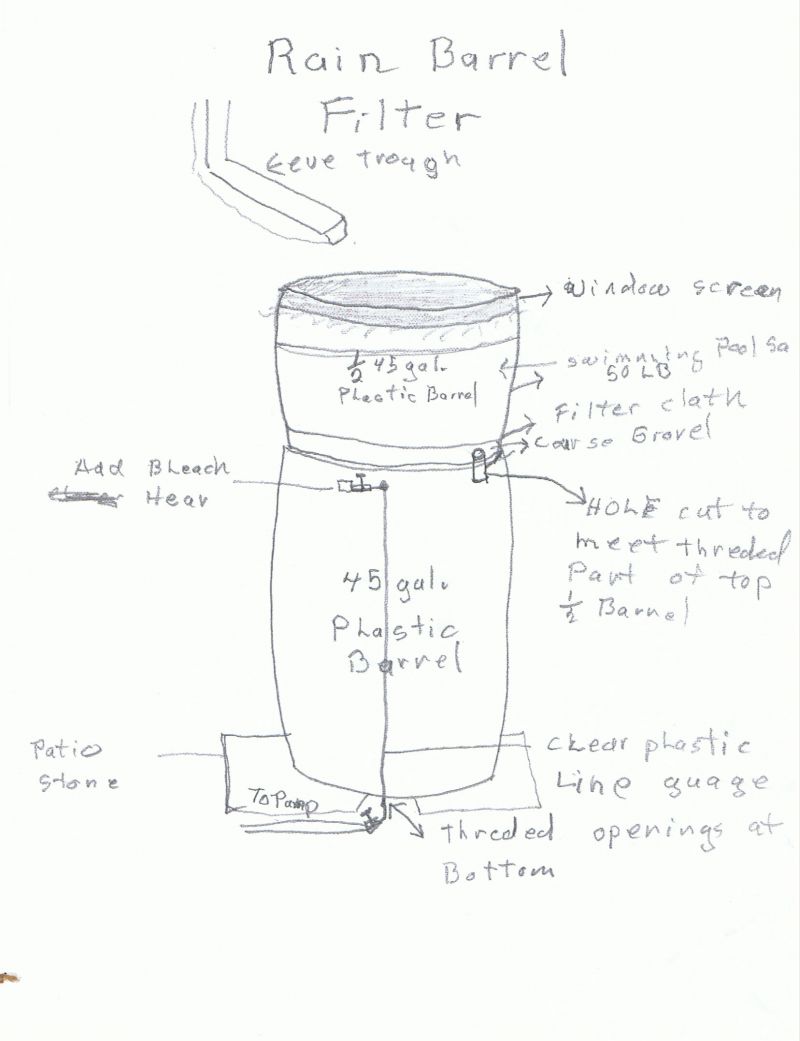 Rain Barrel
Filter
Eeve trough
Window screen
swimnning Pool Sa
50 LB
1/2 45 gal.
Plastic Barrel
Filter clath
Courso Grovel
Add Bleach
Hear
HOLE cut to
meet threded
Part of top
1/2 Barrel
45 gal.
Plastic
Barrel
Patio
stone
Clear plastic
Line guage
To Pump
threded openings at
Bottom